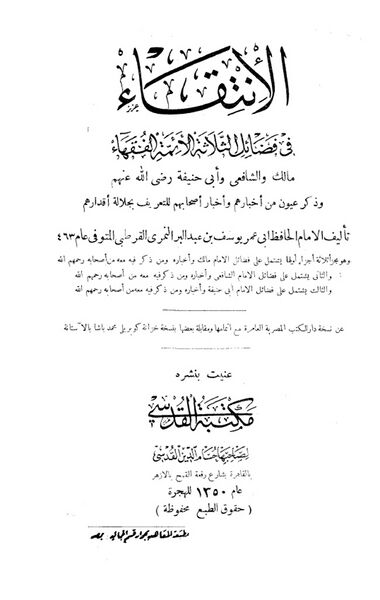 الإنتقاء
في فضائل الثلاثة الأئمة الفقهاء
مالك والشافعي وأبي حنيفة رضي الله عنهم
وذكر عيون من أخبارهم وأخبار أصحابهم للتعريف بجلالة أقدارهم
تأليف الامام الحافظ ابي عمر يوسف بن عبد البر النمري القرطبي المتوفى عام ٤٦٣
وهو عبر ثلاثة أجزاء أولها يشتمل على فضائل الامام مالك وأخباره ومن ذكر فيه معه من أصحابه رحمهم الله
والثاني يشتمل على فضائل الامام الشافعي وأخباره ومن ذكر فيه معه من أصحابه رحمهم الله
والثالث يشتمل على فضائل الامام أبي حنيفة وأخباره ومن ذكر فيه معه من أصحابه رحمهم الله
عن نسخة دار الكتب المصرية العامرة مع اتمامها ومقابلة بعضها بنسخة خزانة كوبريلي محمد باشا بالاستانة
عنيت بنشره
مكتبة القدسي
لصاحبها حسام الدين القدسي
بالقاهرة بشارع رقعة القمح بالازهر
عام ١٣٥٠ للهجرة
( حقوق الطبع محفوظة )
مطبعة المعاهد بجوار قسم الجمالية بمصر